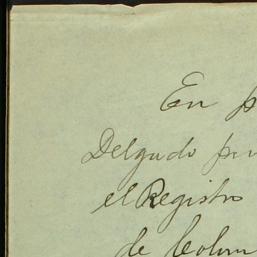 En p
Delgado pu
el Registro
de Colum